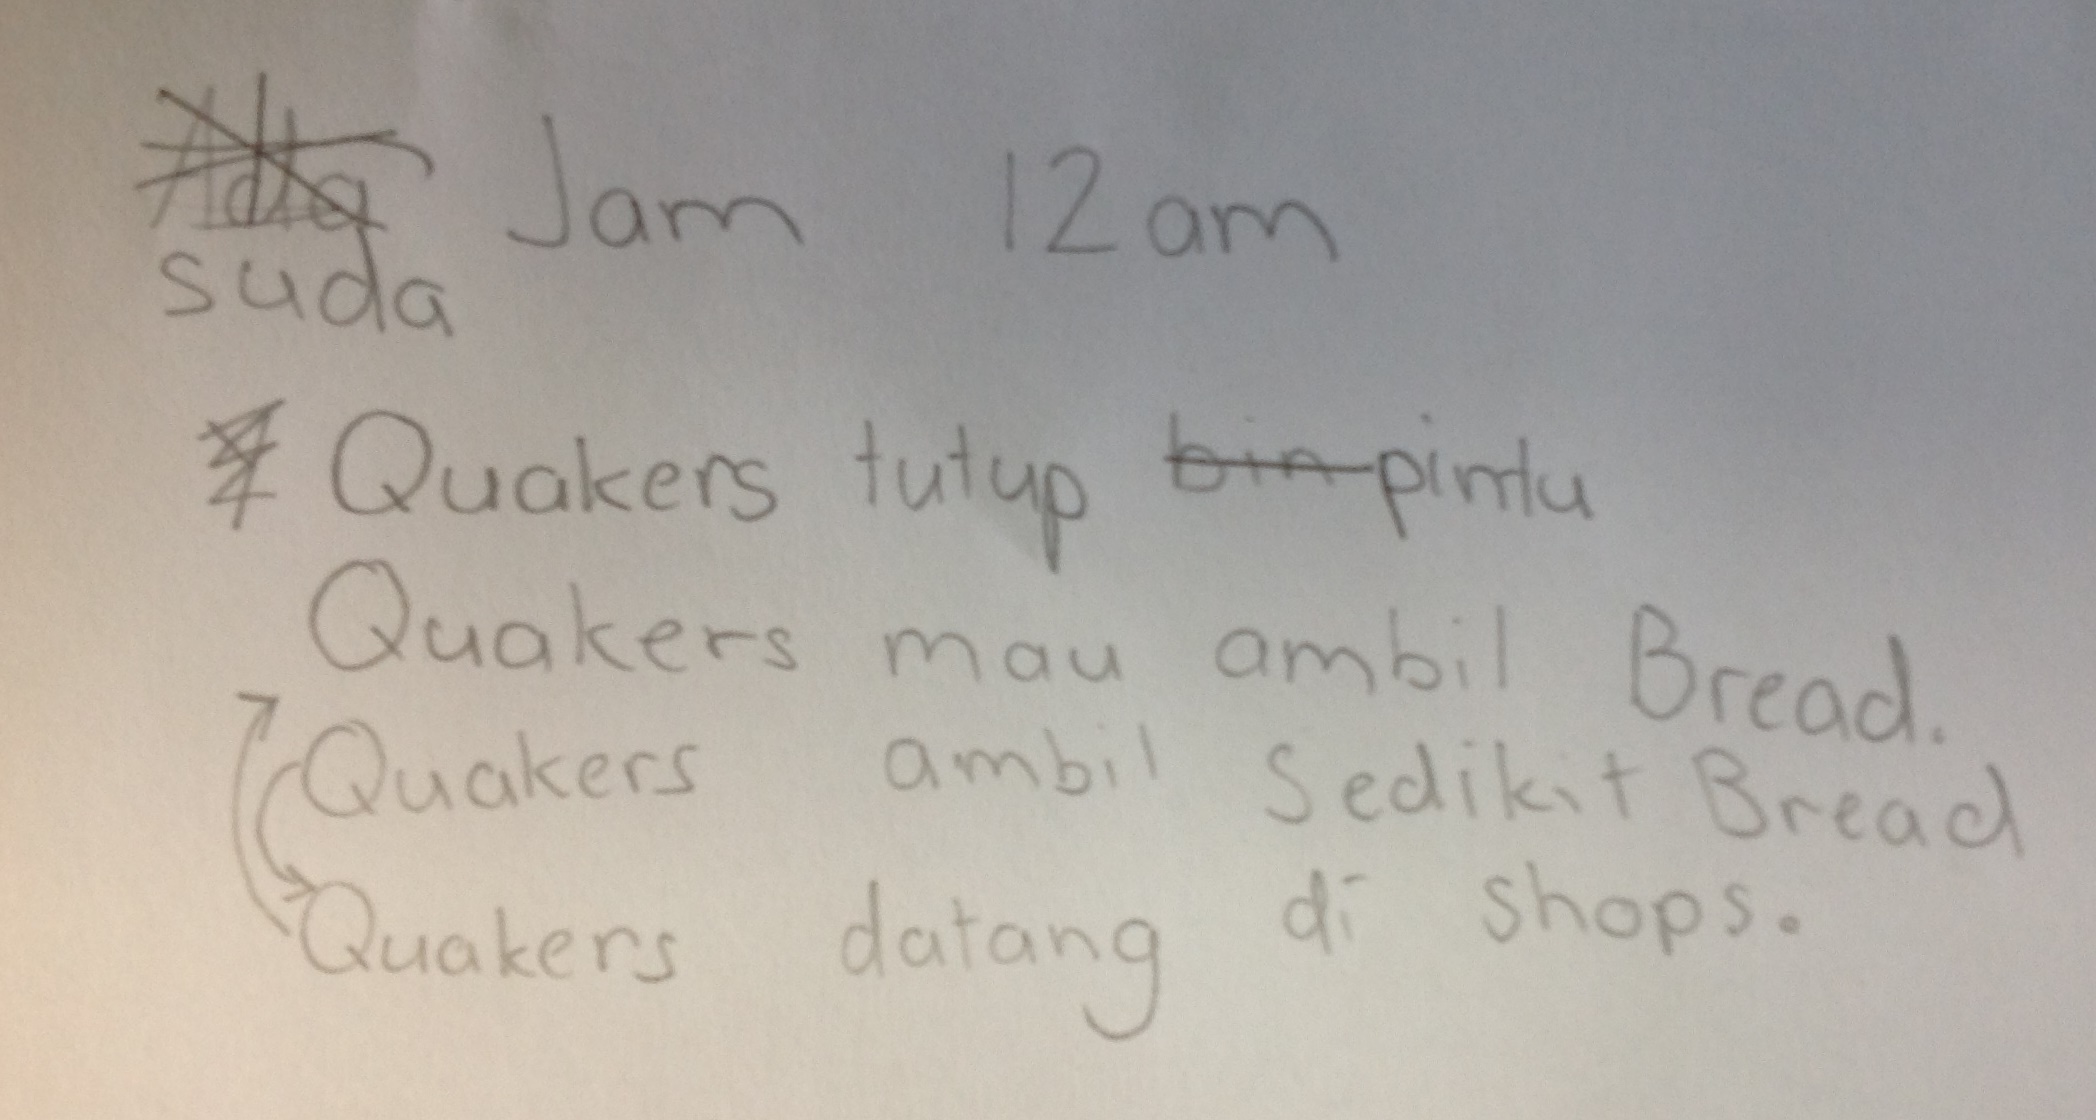 Jam 12am
suda
Quakers tutup bin pintu
Quakers mau ambil Bread.
Quakers ambil Sedikit Bread
Quakers datang di shops.